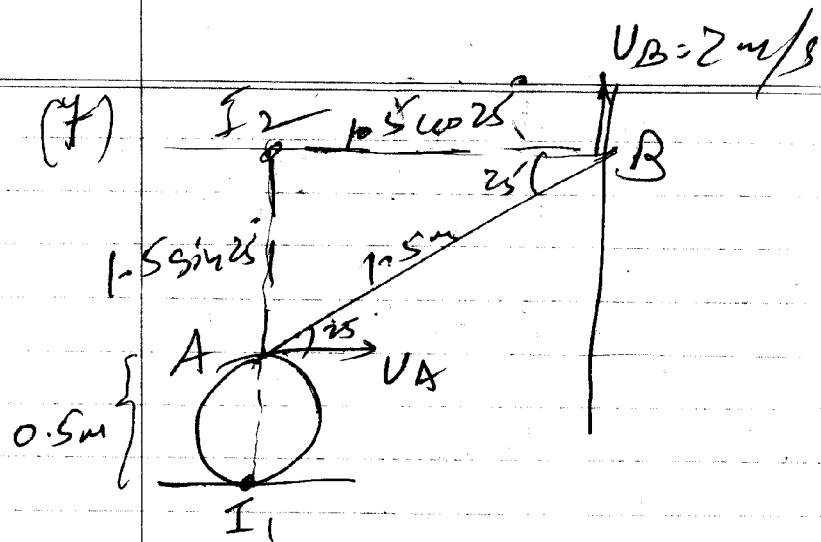 UB = 2 m/s
(7)
I2
1.5 cos 25°
B
25
1.5 sin 25°
1.5 m
25
A
UA
0.5m
I1